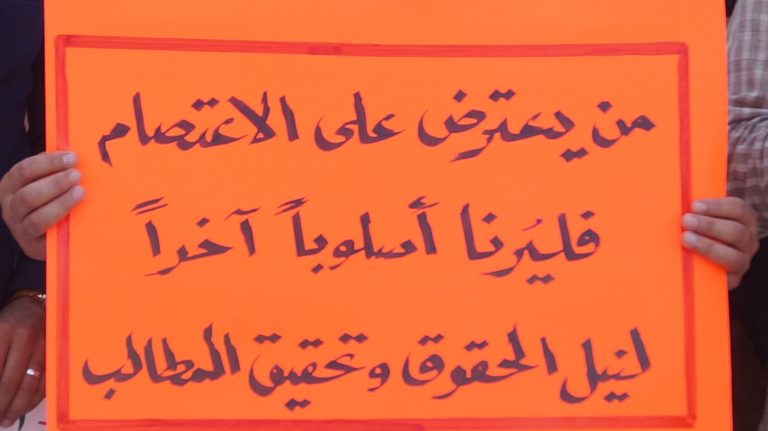 من يعترض على الاعتصام
فليُرنا أسلوباً آخراً
لنيل الحقوق وتحقيق المطالب